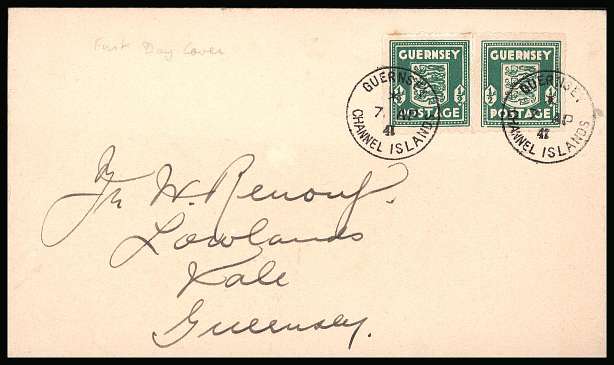 First Day Cover
GUERNSEY
½ ½
POSTAGE
GUERNSEY
½ ½
POSTAGE
GUERNSEY
7 AP
41
CHANNEL ISLANDS
GUERNSEY
AP
41
CHANNEL ISLANDS
Mr W. Renouf.
Lowlands
Vale
Guernsey.